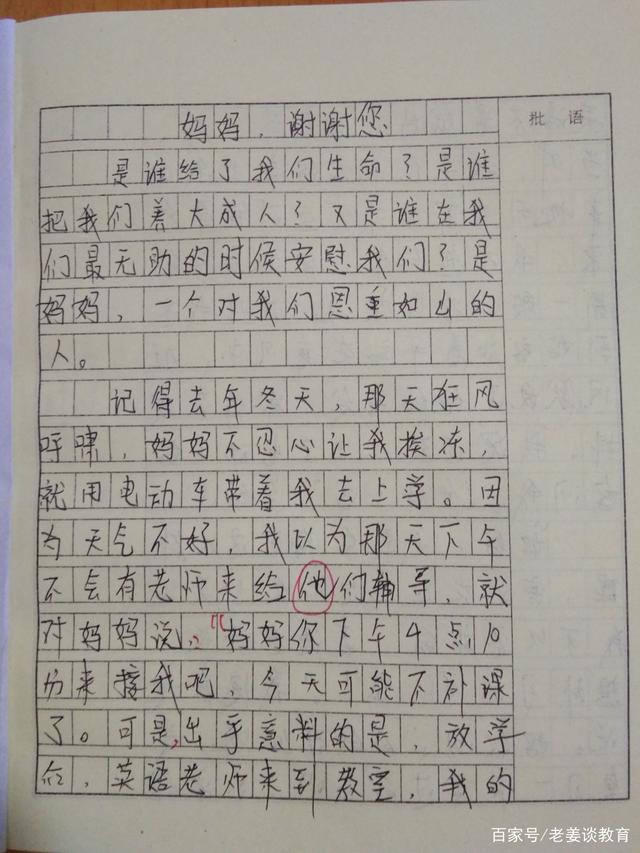 妈妈，谢谢您
批语
是谁给了我们生命？是谁
把我们养大成人？又是谁在我
们最无助的时候安慰我们？是
妈妈，一个对我们恩重如山的
人。
记得去年冬天，那天狂风
呼啸，妈妈不忍心让我挨冻，
就用电动车带着我去上学。因
为天气不好，我以为那天下午
不会有老师来给他们辅导，就
对妈妈说：“妈妈你下午4点10
分来接我吧，今天可能不补课
了。可是，出乎意料的是，放学
后，英语老师来到教室，我的
百家号/老姜谈教育